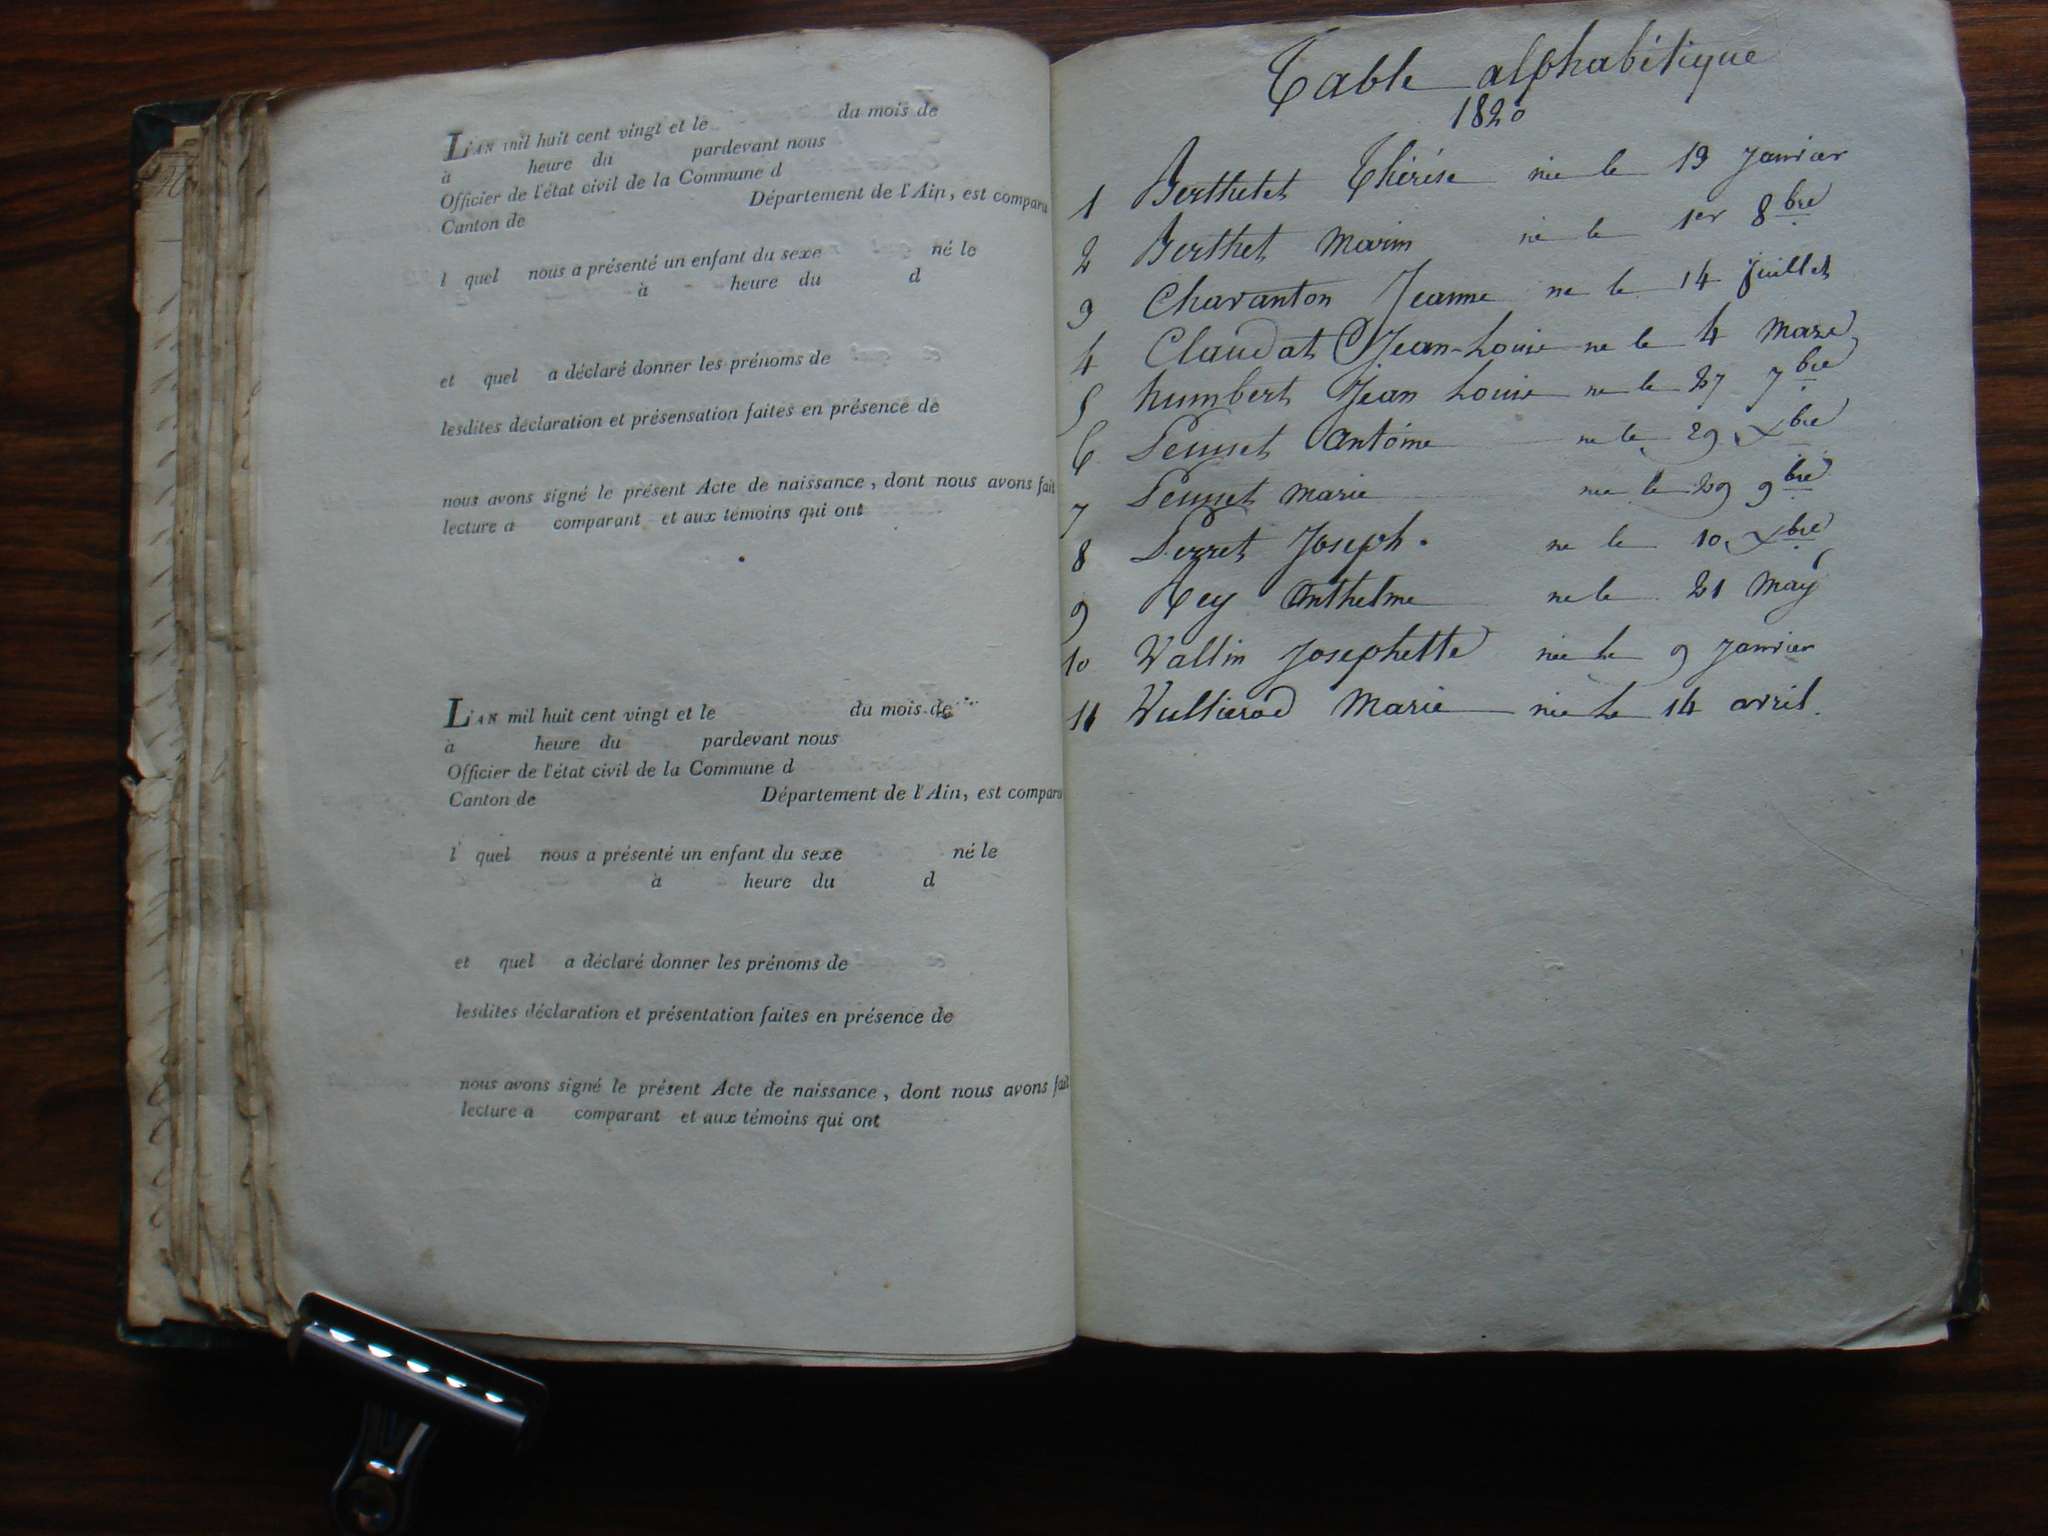 L'AN mil huit cent vingt et le du mois de
à heure du pardevant nous
Officier de l'état civil de la Commune d
Canton de Département de l'Ain, est comparu
l quel nous a présenté un enfant du sexe né le
à heure du d
et quel a déclaré donner les prénoms de
lesdites déclaration et présensation faites en présence de
nous avons signé le présent Acte de naissance, dont nous avons fait
lecture a comparant et aux témoins qui ont
L'AN mil huit cent vingt et le du mois de
à heure du pardevant nous
Officier de l'état civil de la Commune d
Canton de Département de l'Ain, est comparu
l quel nous a présenté un enfant du sexe né le
à heure du d
et quel a déclaré donner les prénoms de
lesdites déclaration et présentation faites en présence de
nous avons signé le présent Acte de naissance, dont nous avons fait
lecture a comparant et aux témoins qui ont
Table alphabétique
1820
1 Berthelet Thérèse née le 19 Janvier
2 Berthet Marin né le 1er 8bre
3 Charanton Jeanne ne le 14 juillet
4 Claudat Jean-Louis ne le 4 Mars
5 humbert Jean Louis ne le 27 7bre
6 Antoine ne le 29 Xbre
7 Marie nee le 29 9bre
8 Perret Joseph. ne le 10 Xbre
9 Rey Anthelme ne le 21 May
10 Vallin Josephette née le 9 Janvier
11 Vullierod Marie née le 14 avril.